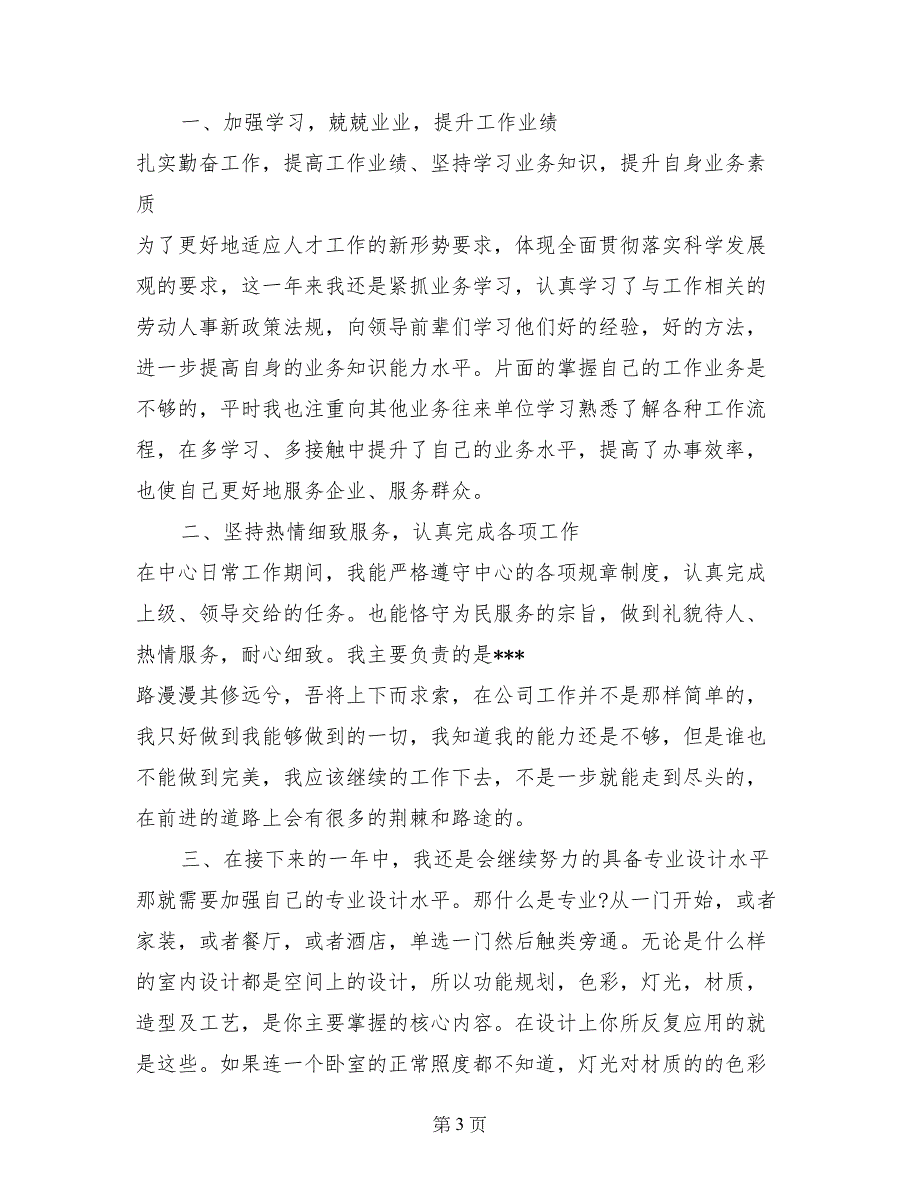 一、加强学习，兢兢业业，提升工作业绩
扎实勤奋工作，提高工作业绩、坚持学习业务知识，提升自身业务素
质
为了更好地适应人才工作的新形势要求，体现全面贯彻落实科学发展
观的要求，这一年来我还是紧抓业务学习，认真学习了与工作相关的
劳动人事新政策法规，向领导前辈们学习他们好的经验，好的方法，
进一步提高自身的业务知识能力水平。片面的掌握自己的工作业务是
不够的，平时我也注重向其他业务往来单位学习熟悉了解各种工作流
程，在多学习、多接触中提升了自己的业务水平，提高了办事效率，
也使自己更好地服务企业、服务群众。
二、坚持热情细致服务，认真完成各项工作
在中心日常工作期间，我能严格遵守中心的各项规章制度，认真完成
上级、领导交给的任务。也能恪守为民服务的宗旨，做到礼貌待人、
热情服务，耐心细致。我主要负责的是***
路漫漫其修远兮，吾将上下而求索，在公司工作并不是那样简单的，
我只好做到我能够做到的一切，我知道我的能力还是不够，但是谁也
不能做到完美，我应该继续的工作下去，不是一步就能走到尽头的，
在前进的道路上会有很多的荆棘和路途的。
三、在接下来的一年中，我还是会继续努力的具备专业设计水平
那就需要加强自己的专业设计水平。那什么是专业?从一门开始，或者
家装，或者餐厅，或者酒店，单选一门然后触类旁通。无论是什么样
的室内设计都是空间上的设计，所以功能规划，色彩，灯光，材质，
造型及工艺，是你主要掌握的核心内容。在设计上你所反复应用的就
是这些。如果连一个卧室的正常照度都不知道，灯光对材质的的色彩
第 3 页